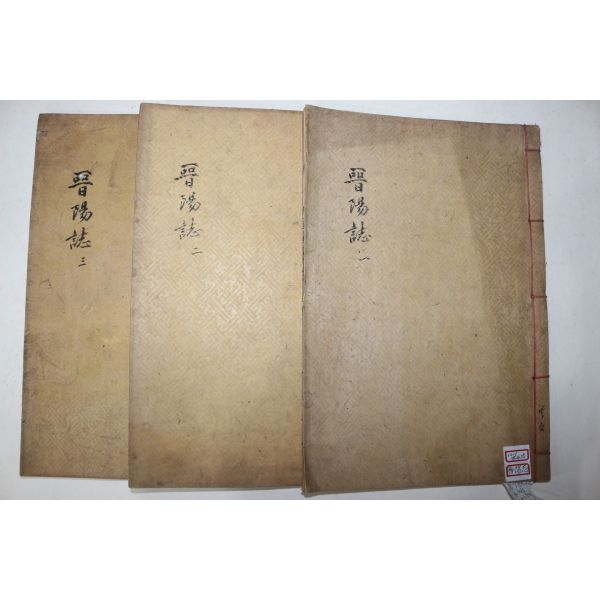 晉陽誌一
晉陽誌二
晉陽誌三